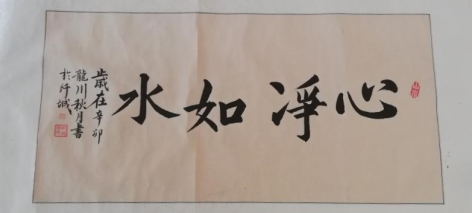 心凈如水
歲在辛卯
龍川秋月書
於城